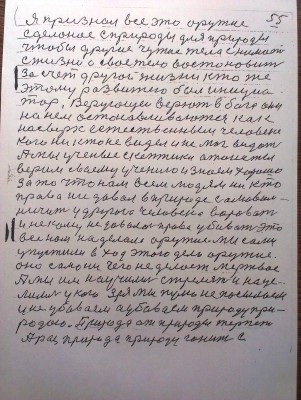 55
(Я признал все это оружие
сделоное с природы для природы
чтобы другие чужие тела снимать
с жизни а своего востоновить
За счет другой жизни кто же
этому развитего был инициа
тор, Верующеи верют в бога они
на нем остонавливаются как
на сверх естественным человеке
кого никто не видел и не мог видеть
А мы ученые скептики а атеисты
верим своему учению и знаем хорошо
за то что нам всем людям ни кто
права не давал в природе самоволь
ничить у другого человека воровать
и некому не довал права убивать Это
все нам наделала оружие. мы сами
упустили в ход этого дела оружие.
оно само ни чего не делает мертвое
А мы им научились стрелять и наце
лили у кого зря мы пулю не посылаем
и не убиваем а убиваем природу при
родою. Природа от природы терпит
А раз природа природу гонит с